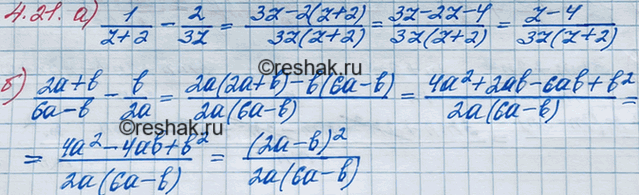 4.21. а) 1/(z+2) - 2/(3z) = (3z-2(z+2))/(3z(z+2)) = (3z-2z-4)/(3z(z+2)) = (z-4)/(3z(z+2))
©reshak.ru
б) (2a+b)/(6a-b) - b/(2a) = (2a(2a+b)-b(6a-b))/(2a(6a-b)) = (4a²+2ab-6ab+b²)/(2a(6a-b)) =
= (4a²-4ab+b²)/(2a(6a-b)) = (2a-b)²/(2a(6a-b))
©reshak.ru